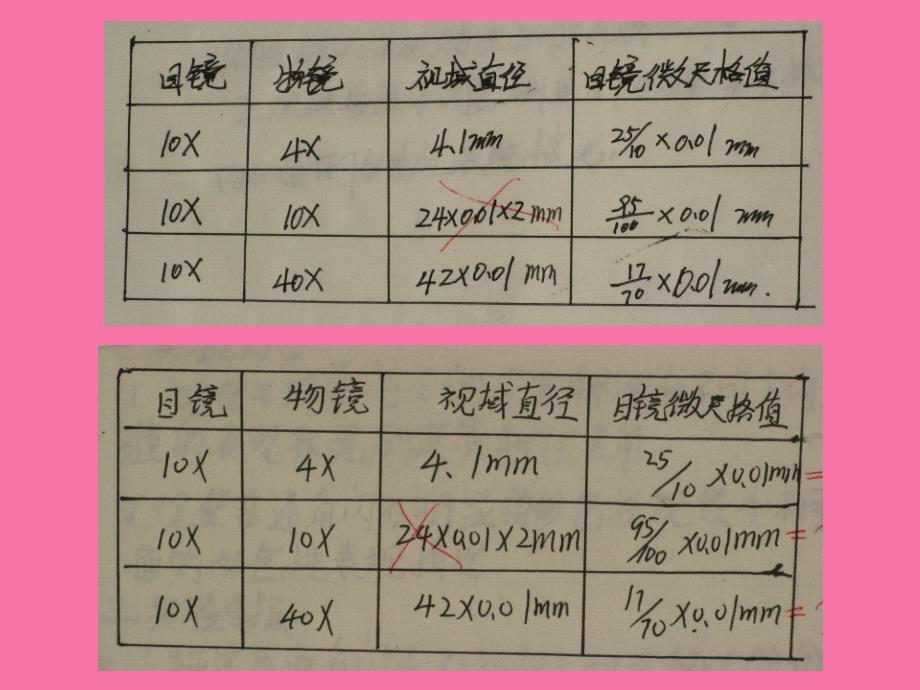 目镜 物镜 视域直径 目镜微尺格值
10X 4X 4.1mm 25/10×0.01 mm
10X 10X 24×0.01×2 mm 95/100×0.01 mm
10X 40X 42×0.01 mm 17/70×0.01 mm.
目镜 物镜 视域直径 目镜微尺格值
10X 4X 4.1mm 25/10×0.01mm =
10X 10X 24×0.01×2mm 95/100×0.01mm =
10X 40X 42×0.01mm 17/70×0.01mm =